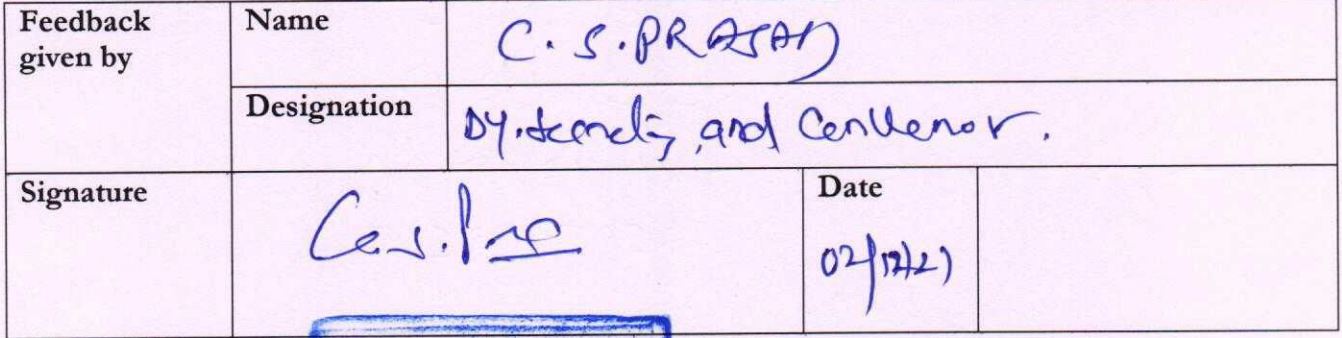 Feedback given by
Name
C. S. PRASAD
Designation
Dy. and Convenor.
Signature
Date